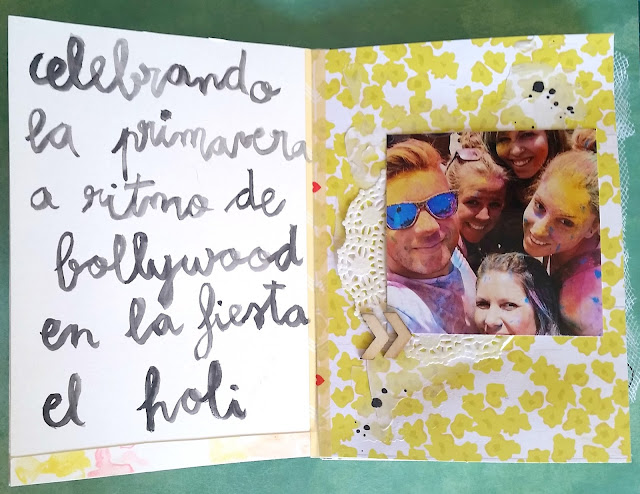 celebrando
la primavera
a ritmo de
bollywood
en la fiesta
el holi